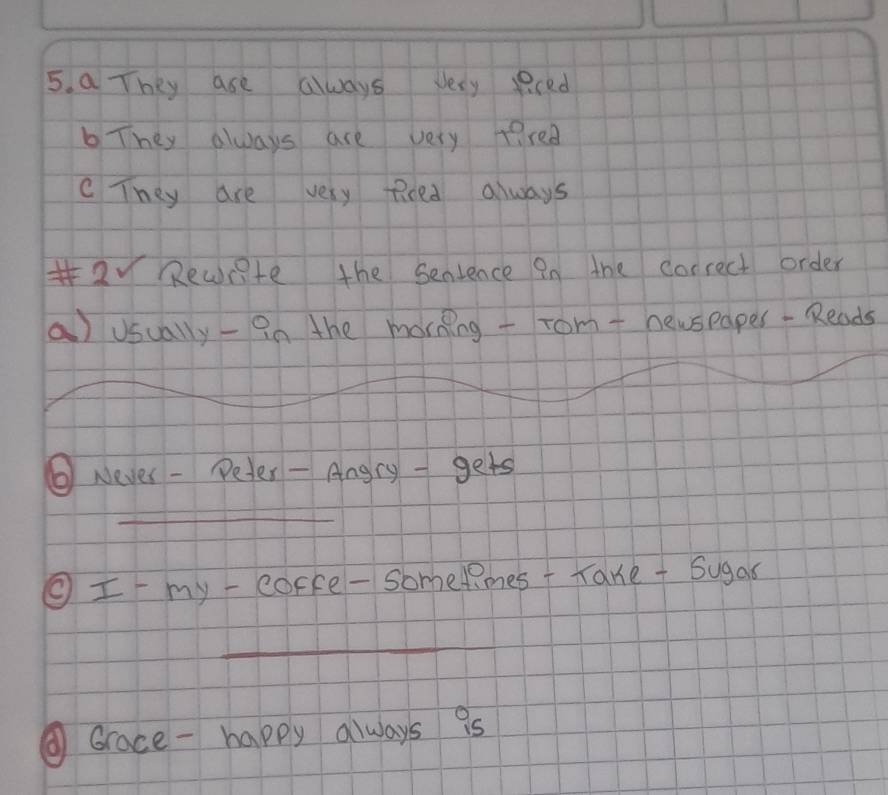 5.a They are always very tired
b They always are very tired
c They are very tired always
#2✓ Rewrite the sentence in the correct order
a) Usually - in the morning - Tom - newspaper - Reads
b Never - Peter - Angry - gets
c I - my - coffe - sometimes - take - sugar
d Grace - happy always is